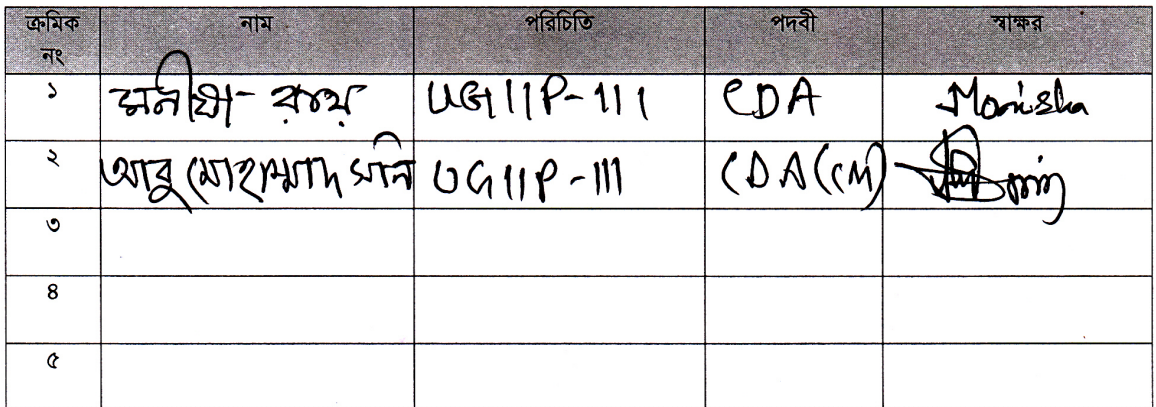 ক্রমিক নং নাম পরিচিতি পদবী স্বাক্ষর
১ মনীষা রায় UGIIP-III CDA Monisha
২ আবু মোহাম্মাদ মনি UGIIP-III CDA(CM)
৩
৪
৫